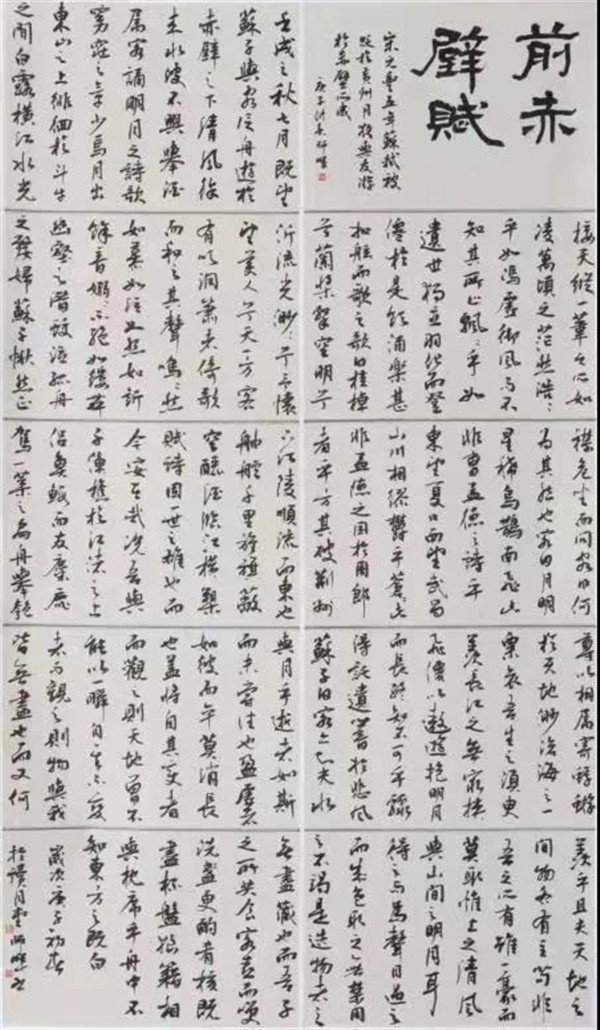 前赤
壁賦
宋元豐五年蘇軾被
貶於黃州月夜與友游
於赤壁而成
庚子
壬戌之秋七月既望
蘇子與客泛舟遊於
赤壁之下清風徐
來水波不興舉酒
属客誦明月之詩歌
窈窕之章少焉月出
東山之上徘徊於斗牛
之間白露橫江水光
接天縱一葦之所如
凌萬頃之茫然浩々
乎如馮虛御風而不
知其所止飄々乎如
遺世獨立羽化而登
僊於是飲酒樂甚
扣舷而歌之歌曰桂棹
兮蘭槳擊空明兮
泝流光渺々兮予懷
望美人兮天一方客
有吹洞簫者倚歌
而和之其聲嗚々然
如慕如泣如怨如訴
餘音嫋々不絕如縷舞
幽壑之潛蛟泣孤舟
之嫠婦蘇子愀然正
襟危坐而問客曰何
為其然也客曰月明
星稀烏鵲南飛此
非曹孟德之詩乎
東望夏口西望武昌
山川相繆鬱乎蒼々此
非孟德之困於周郎
者乎方其破荊州
下江陵順流而東也
舳艫千里旌旗蔽
空釃酒臨江橫槊
賦詩固一世之雄也而
今安在哉況吾與
子漁樵於江渚之上
侶魚蝦而友麋鹿
駕一葉之扁舟舉匏
尊以相属寄蜉蝣
於天地渺滄海之一
粟哀吾生之須臾
羨長江之無窮挾
飛僊以遨遊抱明月
而長終知不可乎驟
得託遺響於悲風
蘇子曰客亦知夫水
與月乎逝者如斯
而未嘗往也盈虛者
如彼而卒莫消長
也蓋將自其變者
而觀之則天地曾不
能以一瞬自其不變
者而觀之則物與我
皆無盡也而又何
羨乎且夫天地之
間物各有主苟非
吾之所有雖一毫而
莫取惟江上之清風
與山間之明月耳
得之而為聲目遇之
而成色取之無禁用
之不竭是造物者之
無盡藏也而吾子
之所共食客喜而笑
洗盞更酌肴核既
盡杯盤狼籍相
與枕席乎舟中不
知東方之既白
歲次庚子初春
於讀月堂